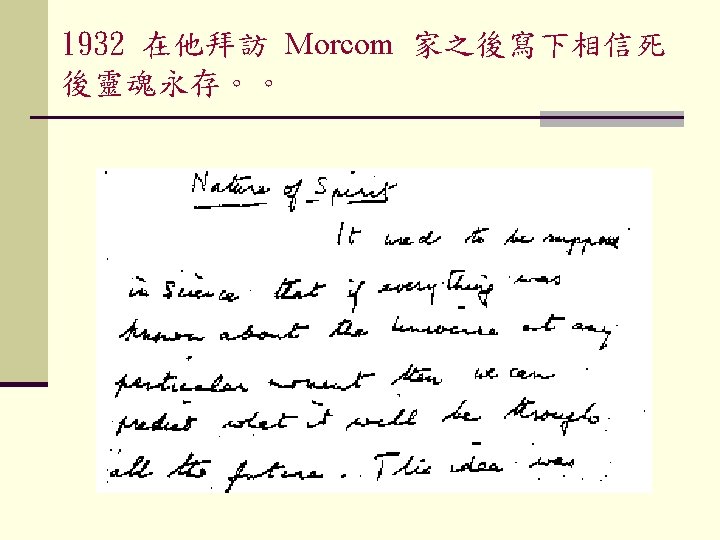 1932 在他拜訪 Morcom 家之後寫下相信死
後靈魂永存。。
Nature of Spirit
It used to be suppose
in Science that if everything was
known about the Universe at any
particular moment then we can
predict what it will be through
all the future. This idea was